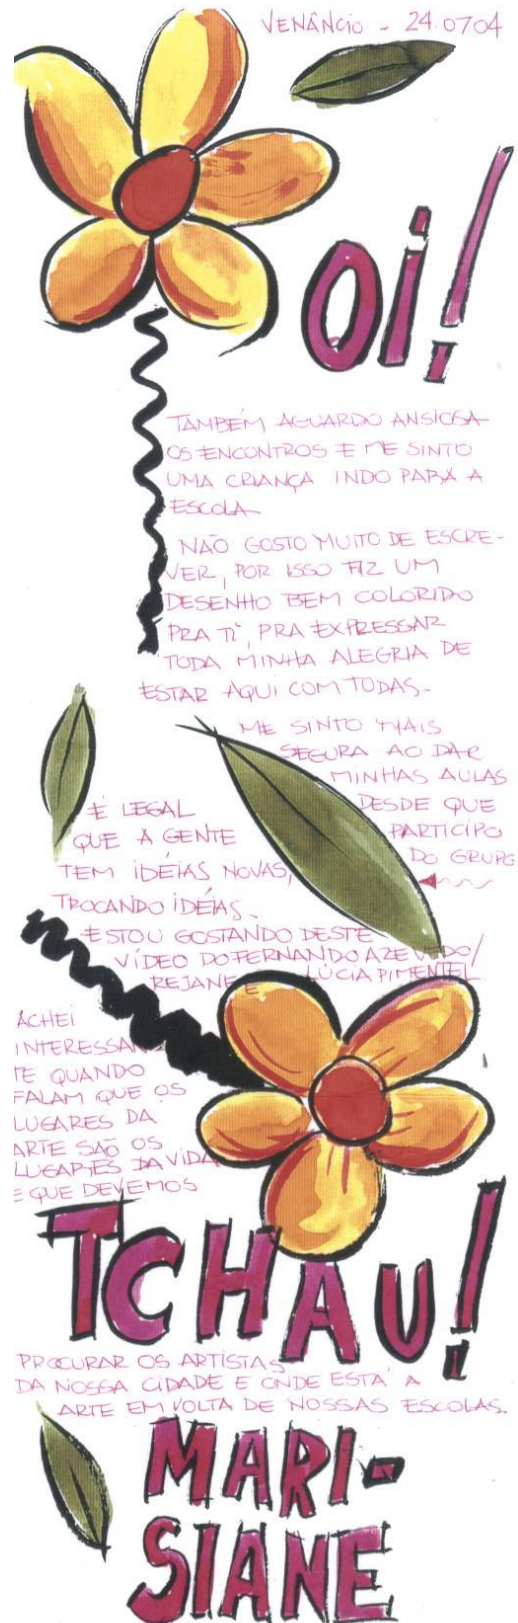 VENÂNCIO - 24.07.04
OI!
TAMBÉM AGUARDO ANSIOSA
OS ENCONTROS E ME SINTO
UMA CRIANÇA INDO PARA A
ESCOLA.
NÃO GOSTO MUITO DE ESCRE-
VER, POR ISSO FIZ UM
DESENHO BEM COLORIDO
PRA TI, PRA EXPRESSAR
TODA MINHA ALEGRIA DE
ESTAR AQUI COM TODAS.
ME SINTO MAIS
SEGURA AO DAR
MINHAS AULAS
DESDE QUE
PARTICIPO
DO GRUPO
É LEGAL
QUE A GENTE
TEM IDÉIAS NOVAS,
TROCANDO IDÉIAS.
ESTOU GOSTANDO DESTE
VÍDEO DO FERNANDO AZEVEDO/
REJANE E LÚCIA PIMENTEL
ACHEI
INTERESSAN
TE QUANDO
FALAM QUE OS
LUGARES DA
ARTE SÃO OS
LUGARES DA VIDA
E QUE DEVEMOS
TCHAU!
PROCURAR OS ARTISTAS
DA NOSSA CIDADE E ONDE ESTÁ A
ARTE EM VOLTA DE NOSSAS ESCOLAS.
MARI-
SIANE